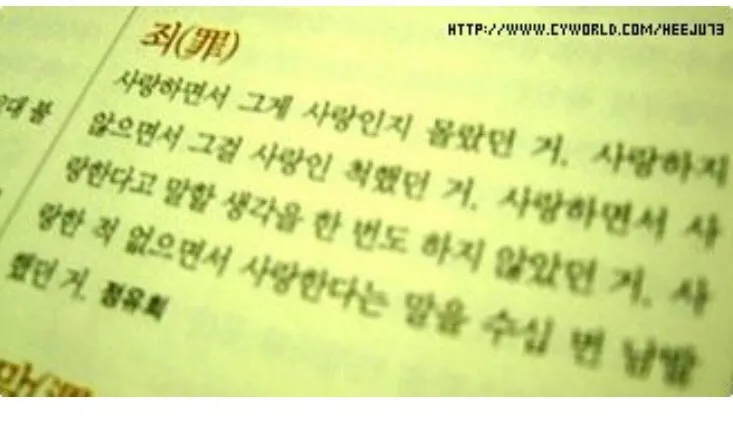 HTTP://WWW.CYWORLD.COM/HEEJU73
죄(罪)
사랑하면서 그게 사랑인지 몰랐던 거. 사랑하지
않으면서 그걸 사랑인 척했던 거. 사랑하면서 사
랑한다고 말할 생각을 한 번도 하지 않았던 거. 사
랑한 적 없으면서 사랑한다는 말을 수십 번 남발
했던 거. 정유희